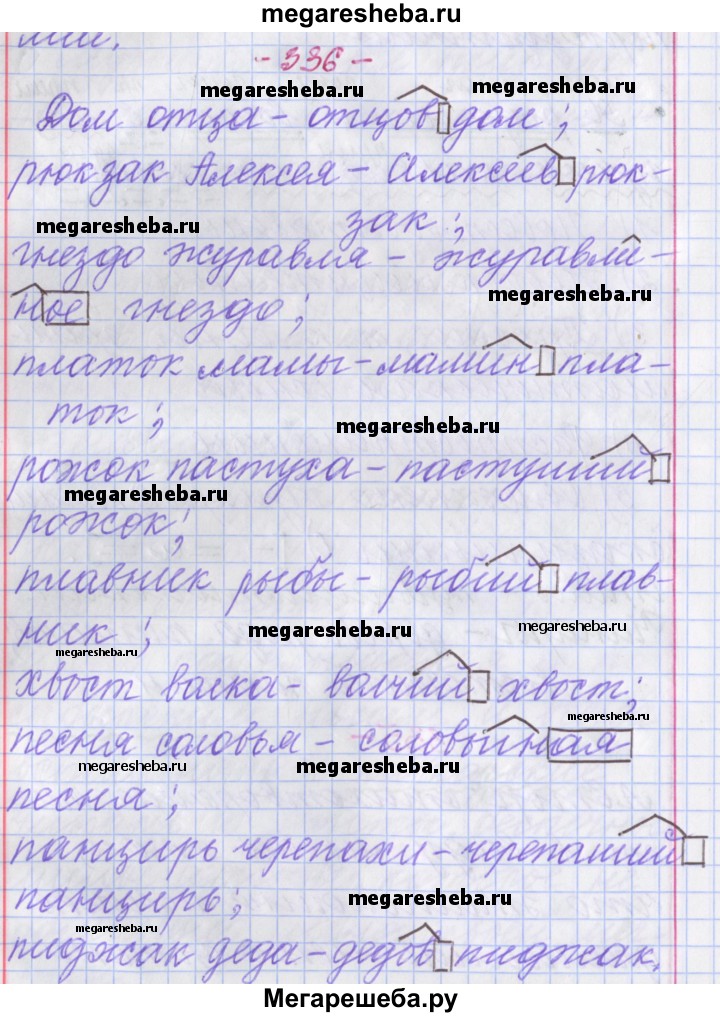 megaresheba.ru
мии.
- 336 -
megaresheba.ru megaresheba.ru
Дом отца - отцов дом;
рюкзак Алексея - Алексеев рюк-
зак;
megaresheba.ru
гнездо журавля - журавли-
megaresheba.ru
ное гнездо;
платок мамы - мамин пла-
ток;
megaresheba.ru
рожок пастуха - пастуший
megaresheba.ru
рожок;
плавник рыбы - рыбий плав-
ник;
megaresheba.ru megaresheba.ru
megaresheba.ru
хвост волка - волчий хвост;
megaresheba.ru
песня соловья - соловьиная
megaresheba.ru megaresheba.ru
песня;
панцирь черепахи - черепаший
панцирь;
megaresheba.ru
megaresheba.ru
пиджак деда - дедов пиджак.
Мегарешеба.ру